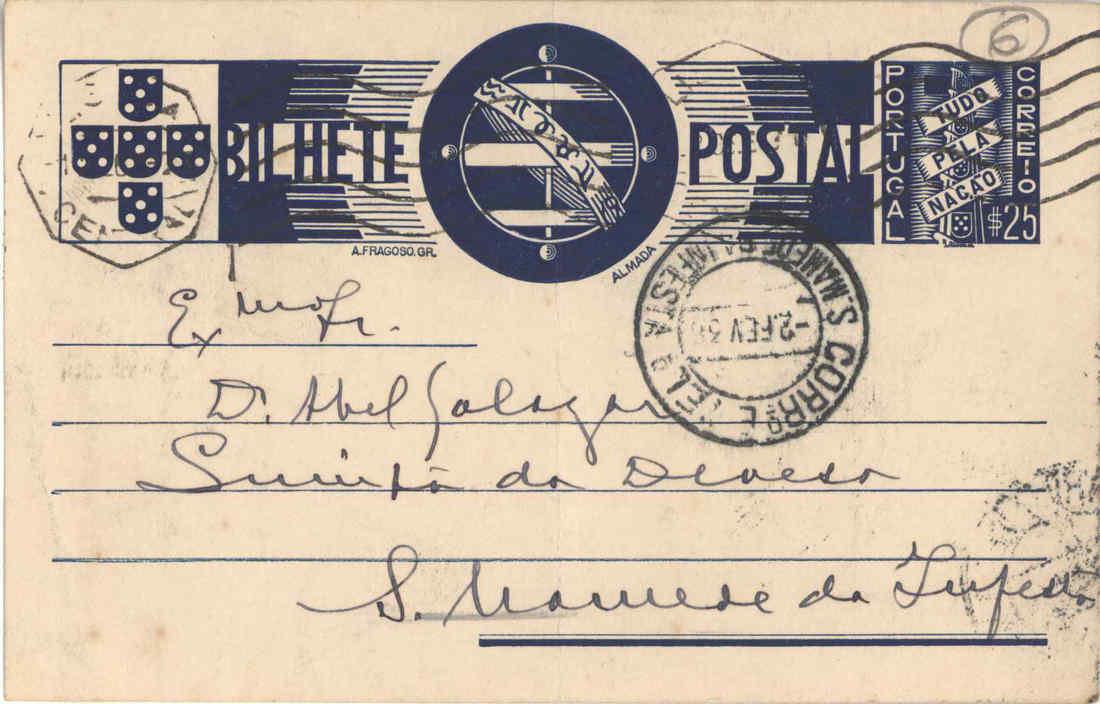 6
BILHETE POSTAL
PORTUGAL
CORREIO
TUDO
PELA
NAÇÃO
$25
A. FRAGOSO. GR.
ALMADA
S. MAMEDE DA INFESTA
-2. FEV 36
CORRº E TEL
CENTRAL
Exmo Sr.
D. Abel Salazar
Quinta da Devesa
S. Mamede da Infesta